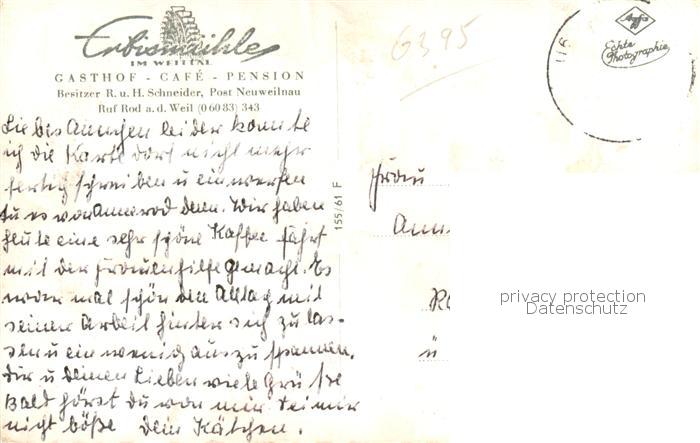 Erbismühle
IM WEILTAL
GASTHOF - CAFÉ - PENSION
Besitzer R. u. H. Schneider, Post Neuweilnau
Ruf Rod a. d. Weil (0 60 83) 343
Liebes Annchen leider konnte
ich die Karte dort nicht mehr
fertig schreiben u einwerfen
tu es von Annerod denn. Wir haben
heute eine sehr schöne Kaffee fahrt
mit der Frauenhilfe gemacht. Es
war mal schön den Alltag mit
seiner Arbeit hinter sich zu las-
sen u ein wenig auszu spannen.
Dir u deinen Lieben viele Grüße
Bald hörst du von mir sei mir
nicht böße dein Kätchen.
155/61 F
6395
Agfa
Echte
Photographie
Frau
Ann
ü
privacy protection
Datenschutz